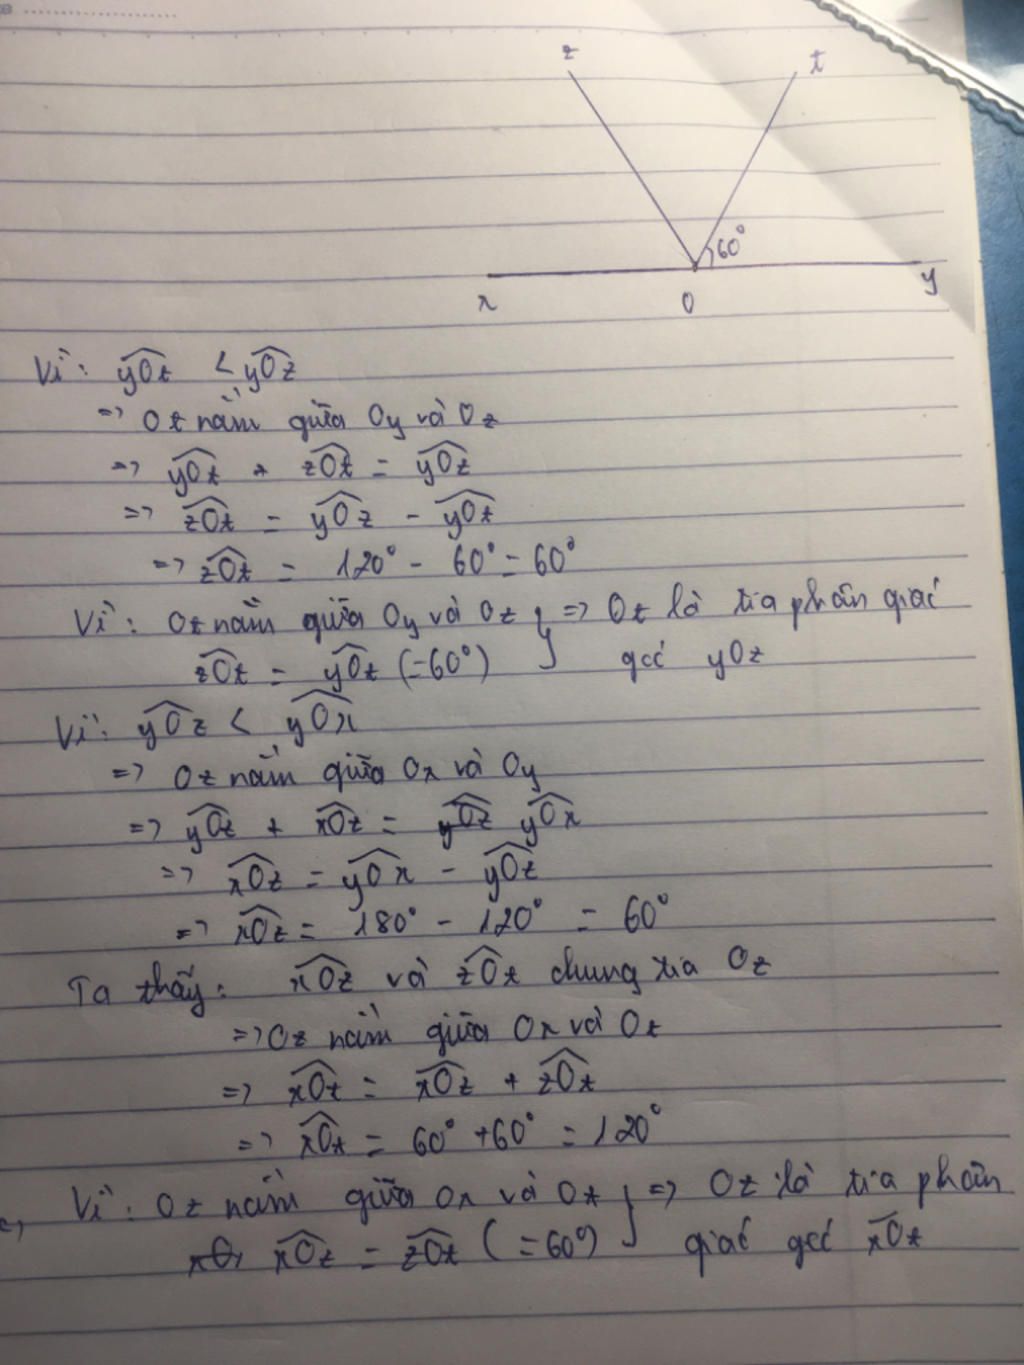 z t
60°
x O y
Vì: yOt < yOz
=> Ot nằm giữa Oy và Oz
=> yOt + zOt = yOz
=> zOt = yOz - yOt
=> zOt = 120° - 60° = 60°
Vì: Ot nằm giữa Oy và Oz } => Ot là tia phân giác
zOt = yOt (=60°) góc yOz
Vì: yOz < yOx
=> Oz nằm giữa Ox và Oy
=> yOz + xOz = yOx
=> xOz = yOx - yOz
=> xOz = 180° - 120° = 60°
Ta thấy: xOz và zOt chung tia Oz
=> Oz nằm giữa Ox và Ot
=> xOt = xOz + zOt
=> xOt = 60° + 60° = 120°
c, Vì: Oz nằm giữa Ox và Ot } => Oz là tia phân
xOz = zOt (=60°) giác góc xOt